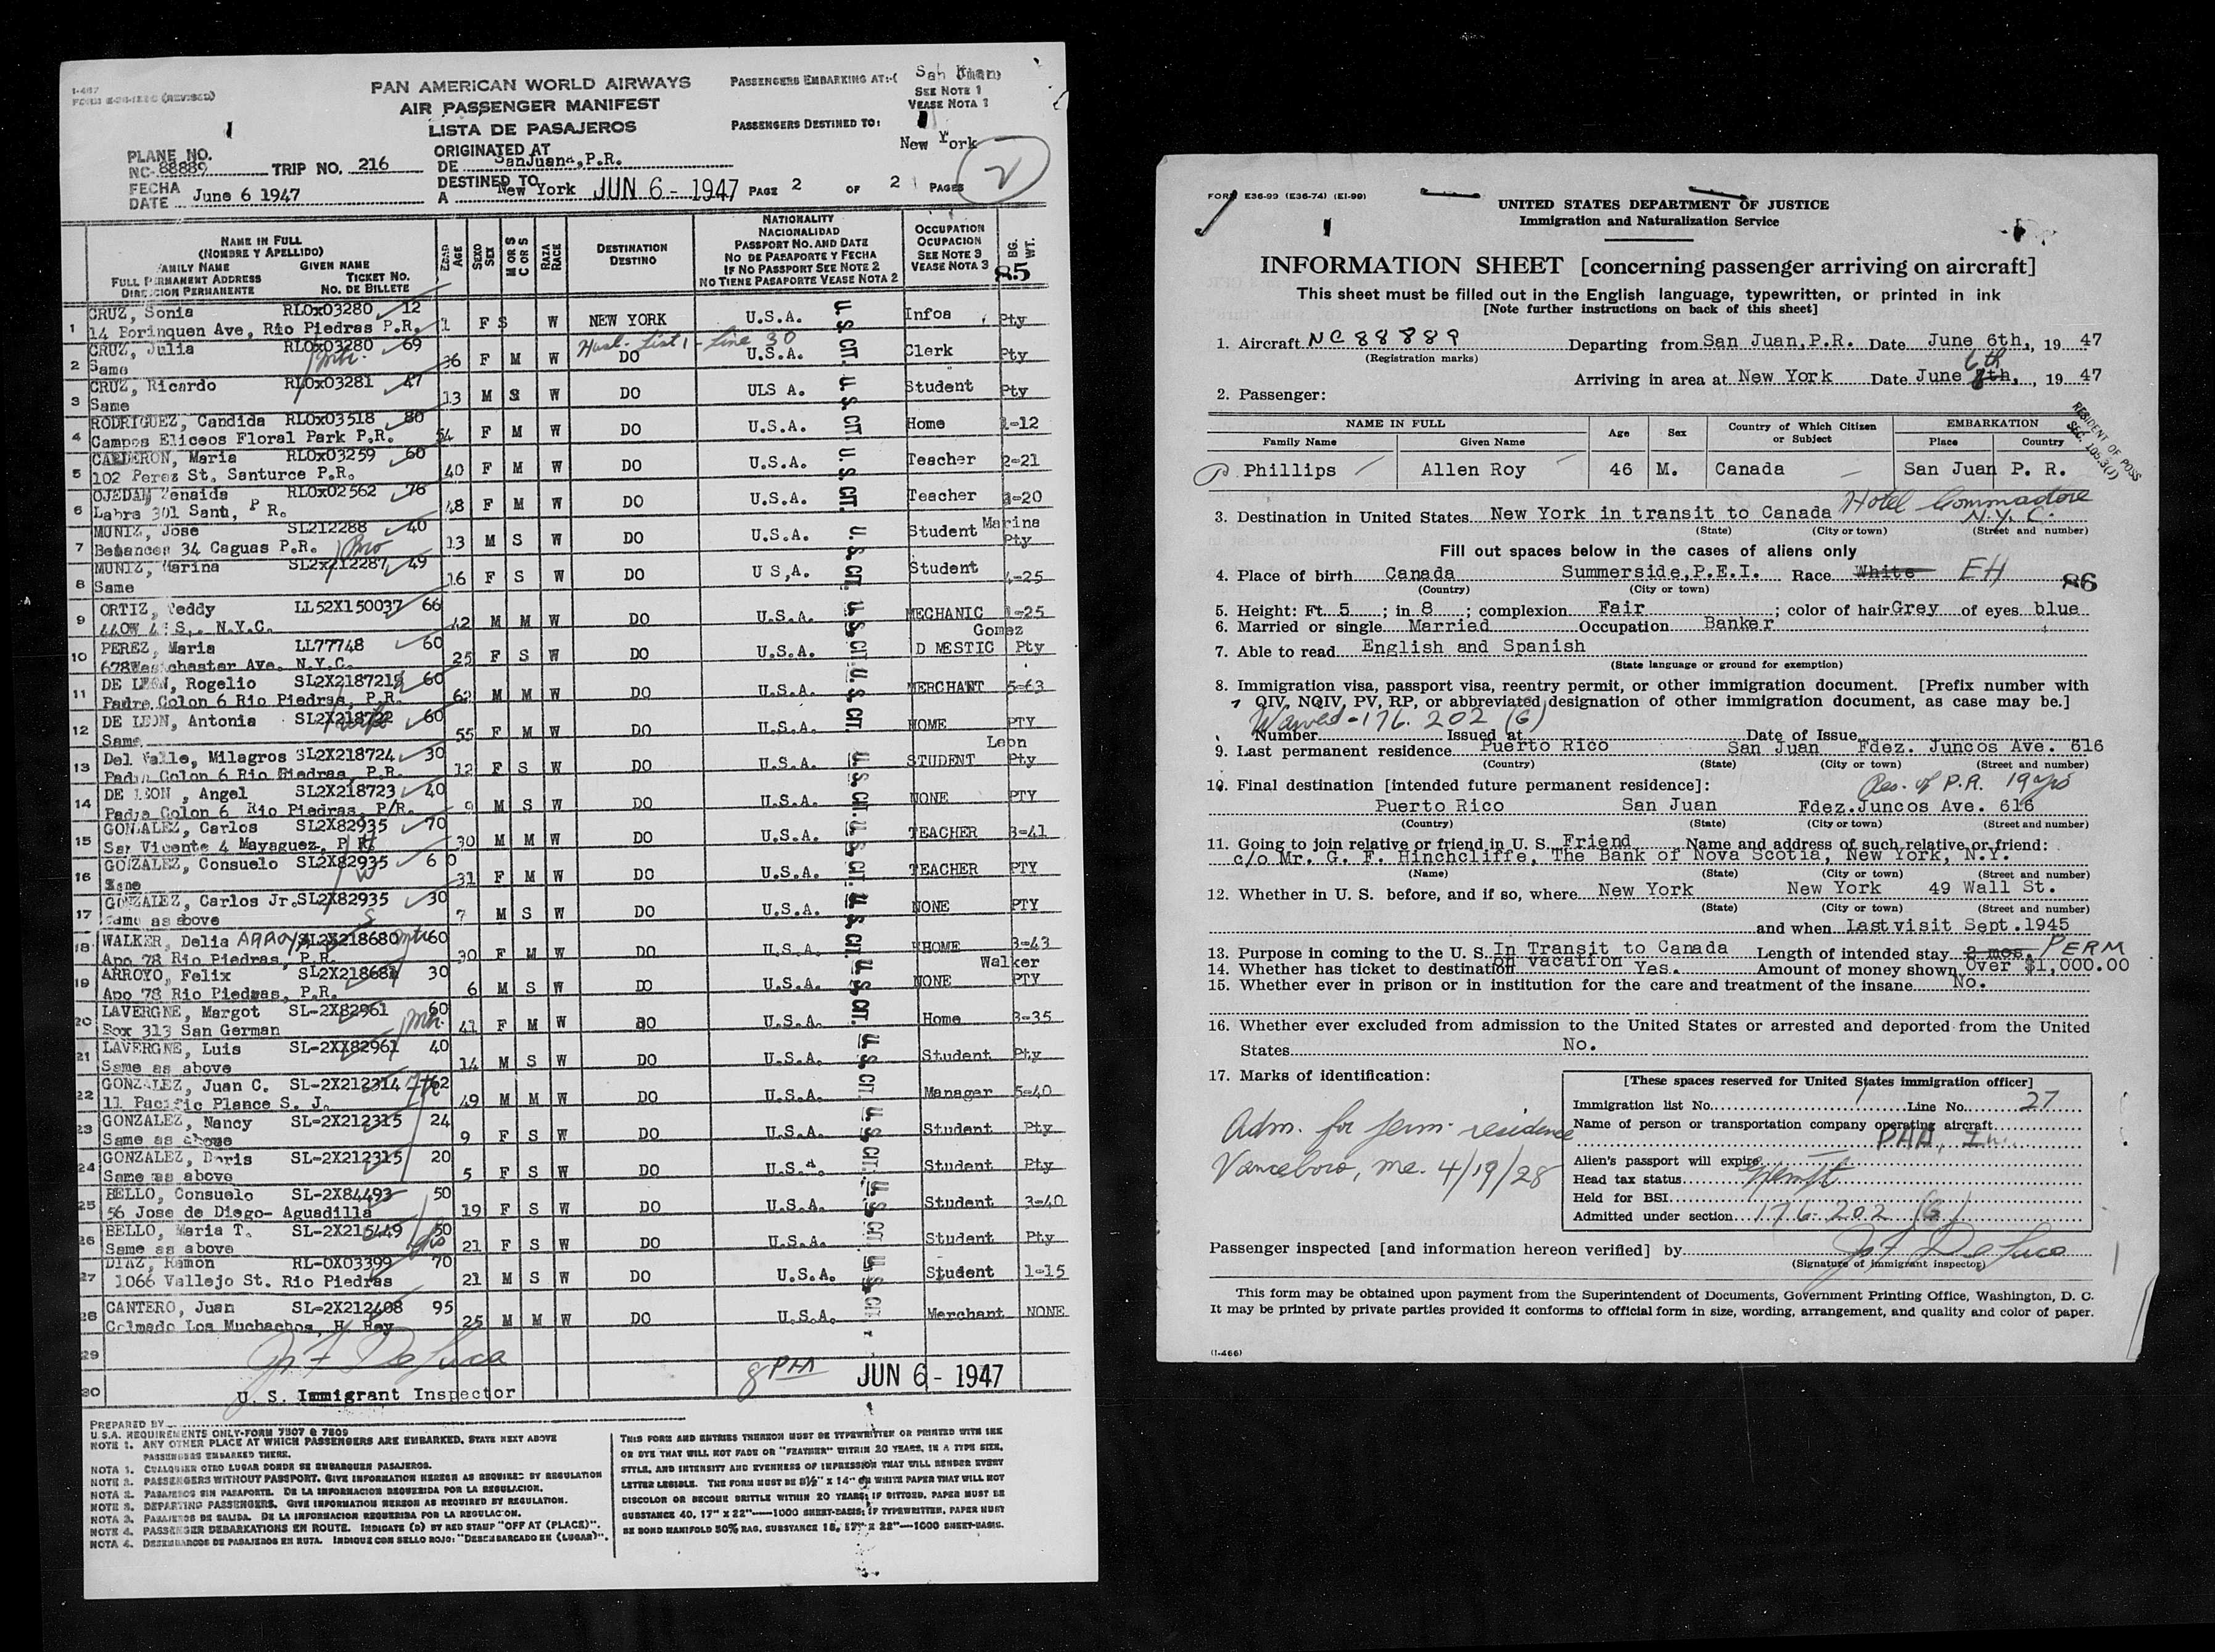 I-467
FORM E-36-126C (REVISED)
PAN AMERICAN WORLD AIRWAYS
AIR PASSENGER MANIFEST
LISTA DE PASAJEROS
PASSENGERS EMBARKING AT:-( San Juan)
SEE NOTE 1
VEASE NOTA 1
PASSENGERS DESTINED TO:
New York
2
PLANE NO.
NC-88889 TRIP NO. 216
ORIGINATED AT
DE SanJuana,P.R.
FECHA
DATE June 6 1947
DESTINED TO
A New York JUN 6 - 1947 PAGE 2 OF 2 PAGES
NAME IN FULL
(NOMBRE Y APELLIDO)
FAMILY NAME GIVEN NAME
FULL PERMANENT ADDRESS TICKET NO.
DIRECCION PERMANENTE NO. DE BILLETE
EDAD AGE
SEXO SEX
M OR S C OR S
RAZA RACE
DESTINATION
DESTINO
NATIONALITY
NACIONALIDAD
PASSPORT NO. AND DATE
NO DE PASAPORTE Y FECHA
IF NO PASSPORT SEE NOTE 2
NO TIENE PASAPORTE VEASE NOTA 2
OCCUPATION
OCUPACION
SEE NOTE 3
VEASE NOTA 3
BG. WT.
85
1 CRUZ, Sonia RLOx03280 12
14 Borinquen Ave, Rio Piedras P.R. 1 F S W NEW YORK U.S.A. Infoa Pty
Husb. List 1 - Line 30
2 CRUZ, Julia RLOx03280 69
Same 36 F M W DO U.S.A. Clerk Pty
3 CRUZ, Ricardo RLOx03281 47
Same 13 M S W DO ULS A. Student Pty
4 RODRIGUEZ, Candida RLOx03518 80
Campos Eliceos Floral Park P.R. 54 F M W DO U.S.A. Home 1-12
5 CALDERON, Maria RLOx03259 60
102 Perez St. Santurce P.R. 40 F M W DO U.S.A. Teacher 2-21
6 OJEDA, Zenaida RLOx02562 76
Labra 301 Sant, P R. 48 F M W DO U.S.A. Teacher 3-20
7 MUNIZ, Jose SL212288 40
Betances 34 Caguas P.R. Bro 13 M S W DO U.S.A. Student Marina Pty
8 MUNIZ, Marina SL2x212287 49
Same 16 F S W DO U S,A. Student 4-25
9 ORTIZ, Teddy LL52X150037 66
440W 41S,. N.Y.C. 42 M M W DO U.S.A. MECHANIC 1-25
10 PEREZ, Maria LL77748 60
678Westchester Ave. N.Y.C. 25 F S W DO U.S.A. D MESTIC Gomez Pty
11 DE LEON, Rogelio SL2X218721 60
Padre Colon 6 Rio Piedras, P.R. 62 M M W DO U.S.A. MERCHANT 5-63
12 DE LEON, Antonia SL2X218722 60
Same 55 F M W DO U.S.A. HOME PTY
13 Del Valle, Milagros SL2X218724 30
Padre Colon 6 Rio Piedras, P.R. 12 F S W DO U.S.A. STUDENT Leon Pty
14 DE LEON , Angel SL2X218723 40
Padre Colon 6 Rio Piedras, P/R. 9 M S W DO U.S.A. NONE PTY
15 GONZALEZ, Carlos SL2X82935 70
San Vicente 4 Mayaguez, P R. 30 M M W DO U.S.A. TEACHER 3-41
16 GONZALEZ, Consuelo SL2X82935 60
Same W 31 F M W DO U.S.A. TEACHER PTY
17 GONZALEZ, Carlos Jr. SL2X82935 30
Same as above S 7 M S W DO U.S.A. NONE PTY
18 WALKER, Delia ARROYO SL2X218680 60
Apo 78 Rio Piedras, P.R. 30 F M W DO U.S.A. HHOME 3-43
19 ARROYO, Felix SL2X218681 30
Apo 78 Rio Piedras, P.R. 6 M S W DO U.S.A. NONE Walker PTY
20 LAVERGNE, Margot SL-2X82961 60
Box 313 San German 41 F M W DO U.S.A. Home 3-35
21 LAVERGNE, Luis SL-2XX82961 40
Same as above 14 M S W DO U.S.A. Student Pty
22 GONZALEZ, Juan C. SL-2X212314 162
11 Pacific Plance S. J. 49 M M W DO U.S.A. Manager 5-40
23 GONZALEZ, Nancy SL-2X212315 24
Same as above 9 F S W DO U.S.A. Student Pty
24 GONZALEZ, Doris SL-2X212315 20
Same as above 5 F S W DO U.S.A. Student Pty
25 BELLO, Consuelo SL-2X84493 50
56 Jose de Diego- Aguadilla 19 F S W DO U.S.A. Student 3-40
26 BELLO, Maria T. SL-2X215449 50
Same as above 21 F S W DO U.S.A. Student Pty
27 DIAZ, Ramon RL-OX03399 70
1066 Vallejo St. Rio Piedras 21 M S W DO U.S.A. Student 1-15
28 CANTERO, Juan SL-2X212408 95
Colmado Los Muchachos, H. Rey 25 M M W DO U.S.A. Merchant NONE
U.S. CIT.
29 Jn F De Luca
8 PAA JUN 6 - 1947
30 U. S. Immigrant Inspector
PREPARED BY
U.S.A. REQUIREMENTS ONLY-FORM 7507 & 7509
NOTE 1. ANY OTHER PLACE AT WHICH PASSENGERS ARE EMBARKED, STATE NEXT ABOVE
PASSENGERS EMBARKED THERE.
NOTA 1. CUALQUIER OTRO LUGAR DONDE SE EMBARQUEN PASAJEROS.
NOTE 2. PASSENGERS WITHOUT PASSPORT. GIVE INFORMATION HEREON AS REQUIRED BY REGULATION
NOTA 2. PASAJEROS SIN PASAPORTE. DE LA INFORMACION REQUERIDA POR LA REGULACION.
NOTE 3. DEPARTING PASSENGERS. GIVE INFORMATION HEREON AS REQUIRED BY REGULATION.
NOTA 3. PASAJEROS DE SALIDA. DE LA INFORMACION REQUERIDA POR LA REGULACION.
NOTE 4. PASSENGER DEBARKATIONS EN ROUTE. INDICATE (D) BY RED STAMP "OFF AT (PLACE)".
NOTA 4. DESEMBARCOS DE PASAJEROS EN RUTA. INDIQUE CON SELLO ROJO: "DESEMBARCADO EN (LUGAR)".
THIS FORM AND ENTRIES THEREON MUST BE TYPEWRITTEN OR PRINTED WITH INK
OR DYE THAT WILL NOT FADE OR "FEATHER" WITHIN 20 YEARS, IN A TYPE SIZE,
STYLE, AND INTENSITY AND EVENNESS OF IMPRESSION THAT WILL RENDER EVERY
LETTER LEGIBLE. THE FORM MUST BE 8½" X 14" ON WHITE PAPER THAT WILL NOT
DISCOLOR OR BECOME BRITTLE WITHIN 20 YEARS; IF DITTOED, PAPER MUST BE
SUBSTANCE 40, 17" X 22"—1000 SHEET-BASIS; IF TYPEWRITTEN, PAPER MUST
BE BOND MANIFOLD 50% RAG, SUBSTANCE 16, 17" X 22"—1000 SHEET-BASIS.
FORM E36-93 (E36-74) (EI-99)
UNITED STATES DEPARTMENT OF JUSTICE
Immigration and Naturalization Service
INFORMATION SHEET [concerning passenger arriving on aircraft]
This sheet must be filled out in the English language, typewritten, or printed in ink
[Note further instructions on back of this sheet]
1. Aircraft NC88889 Departing from San Juan,P.R. Date June 6th, 19 47
(Registration marks)
6th
Arriving in area at New York Date June 8th, , 19 47
2. Passenger:
RESIDENT OF POSS
SEC. 105.3(J)
NAME IN FULL Age Sex Country of Which Citizen or Subject EMBARKATION
Family Name Given Name Place Country
Phillips Allen Roy 46 M. Canada San Juan P. R.
Hotel Commodore
3. Destination in United States New York in transit to Canada N.Y.C.
(State) (City or town) (Street and number)
Fill out spaces below in the cases of aliens only
4. Place of birth Canada Summerside,P.E.I. Race White EH 86
(Country) (City or town)
5. Height: Ft. 5 ; in 8 ; complexion Fair ; color of hair Grey of eyes blue
6. Married or single Married Occupation Banker
7. Able to read English and Spanish
(State language or ground for exemption)
8. Immigration visa, passport visa, reentry permit, or other immigration document. [Prefix number with
QIV, NQIV, PV, RP, or abbreviated designation of other immigration document, as case may be.]
Waived - 176. 202 (G)
Number Issued at Date of Issue
9. Last permanent residence Puerto Rico San Juan Fdez. Juncos Ave. 616
(Country) (State) (City or town) (Street and number)
10. Final destination [intended future permanent residence]: Res. of P.R. 19 yrs
Puerto Rico San Juan Fdez.Juncos Ave. 616
(Country) (State) (City or town) (Street and number)
11. Going to join relative or friend in U. S. Friend Name and address of such relative or friend:
c/o Mr. G. F. Hinchcliffe, The Bank of Nova Scotia, New York, N.Y.
(Name) (State) (City or town) (Street and number)
12. Whether in U. S. before, and if so, where New York New York 49 Wall St.
(State) (City or town) (Street and number)
and when Last visit Sept.1945
13. Purpose in coming to the U. S. In Transit to Canada Length of intended stay 2 mos. PERM
on vacation
14. Whether has ticket to destination Yes. Amount of money shown Over $1,000.00
15. Whether ever in prison or in institution for the care and treatment of the insane No.
16. Whether ever excluded from admission to the United States or arrested and deported from the United
States No.
17. Marks of identification:
Adm. for perm. residence
Vanceboro, Me. 4/19/28
[These spaces reserved for United States immigration officer]
Immigration list No. 1 Line No. 27
Name of person or transportation company operating aircraft
PAA, Inc.
Alien's passport will expire
Head tax status Exempt
Held for BSI
Admitted under section 176. 202 (G)
Passenger inspected [and information hereon verified] by Jn F De Luca
(Signature of immigrant inspector)
This form may be obtained upon payment from the Superintendent of Documents, Government Printing Office, Washington, D. C.
It may be printed by private parties provided it conforms to official form in size, wording, arrangement, and quality and color of paper.
(I-466)